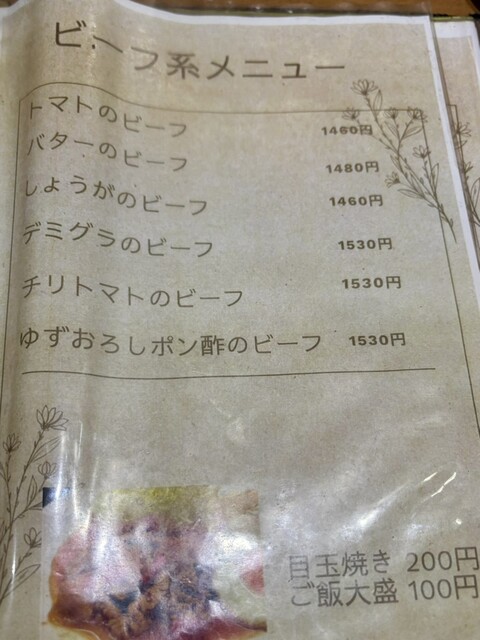 ビーフ系メニュー
トマトのビーフ 1460円
バターのビーフ 1480円
しょうがのビーフ 1460円
デミグラのビーフ 1530円
チリトマトのビーフ 1530円
ゆずおろしポン酢のビーフ 1530円
目玉焼き 200円
ご飯大盛 100円